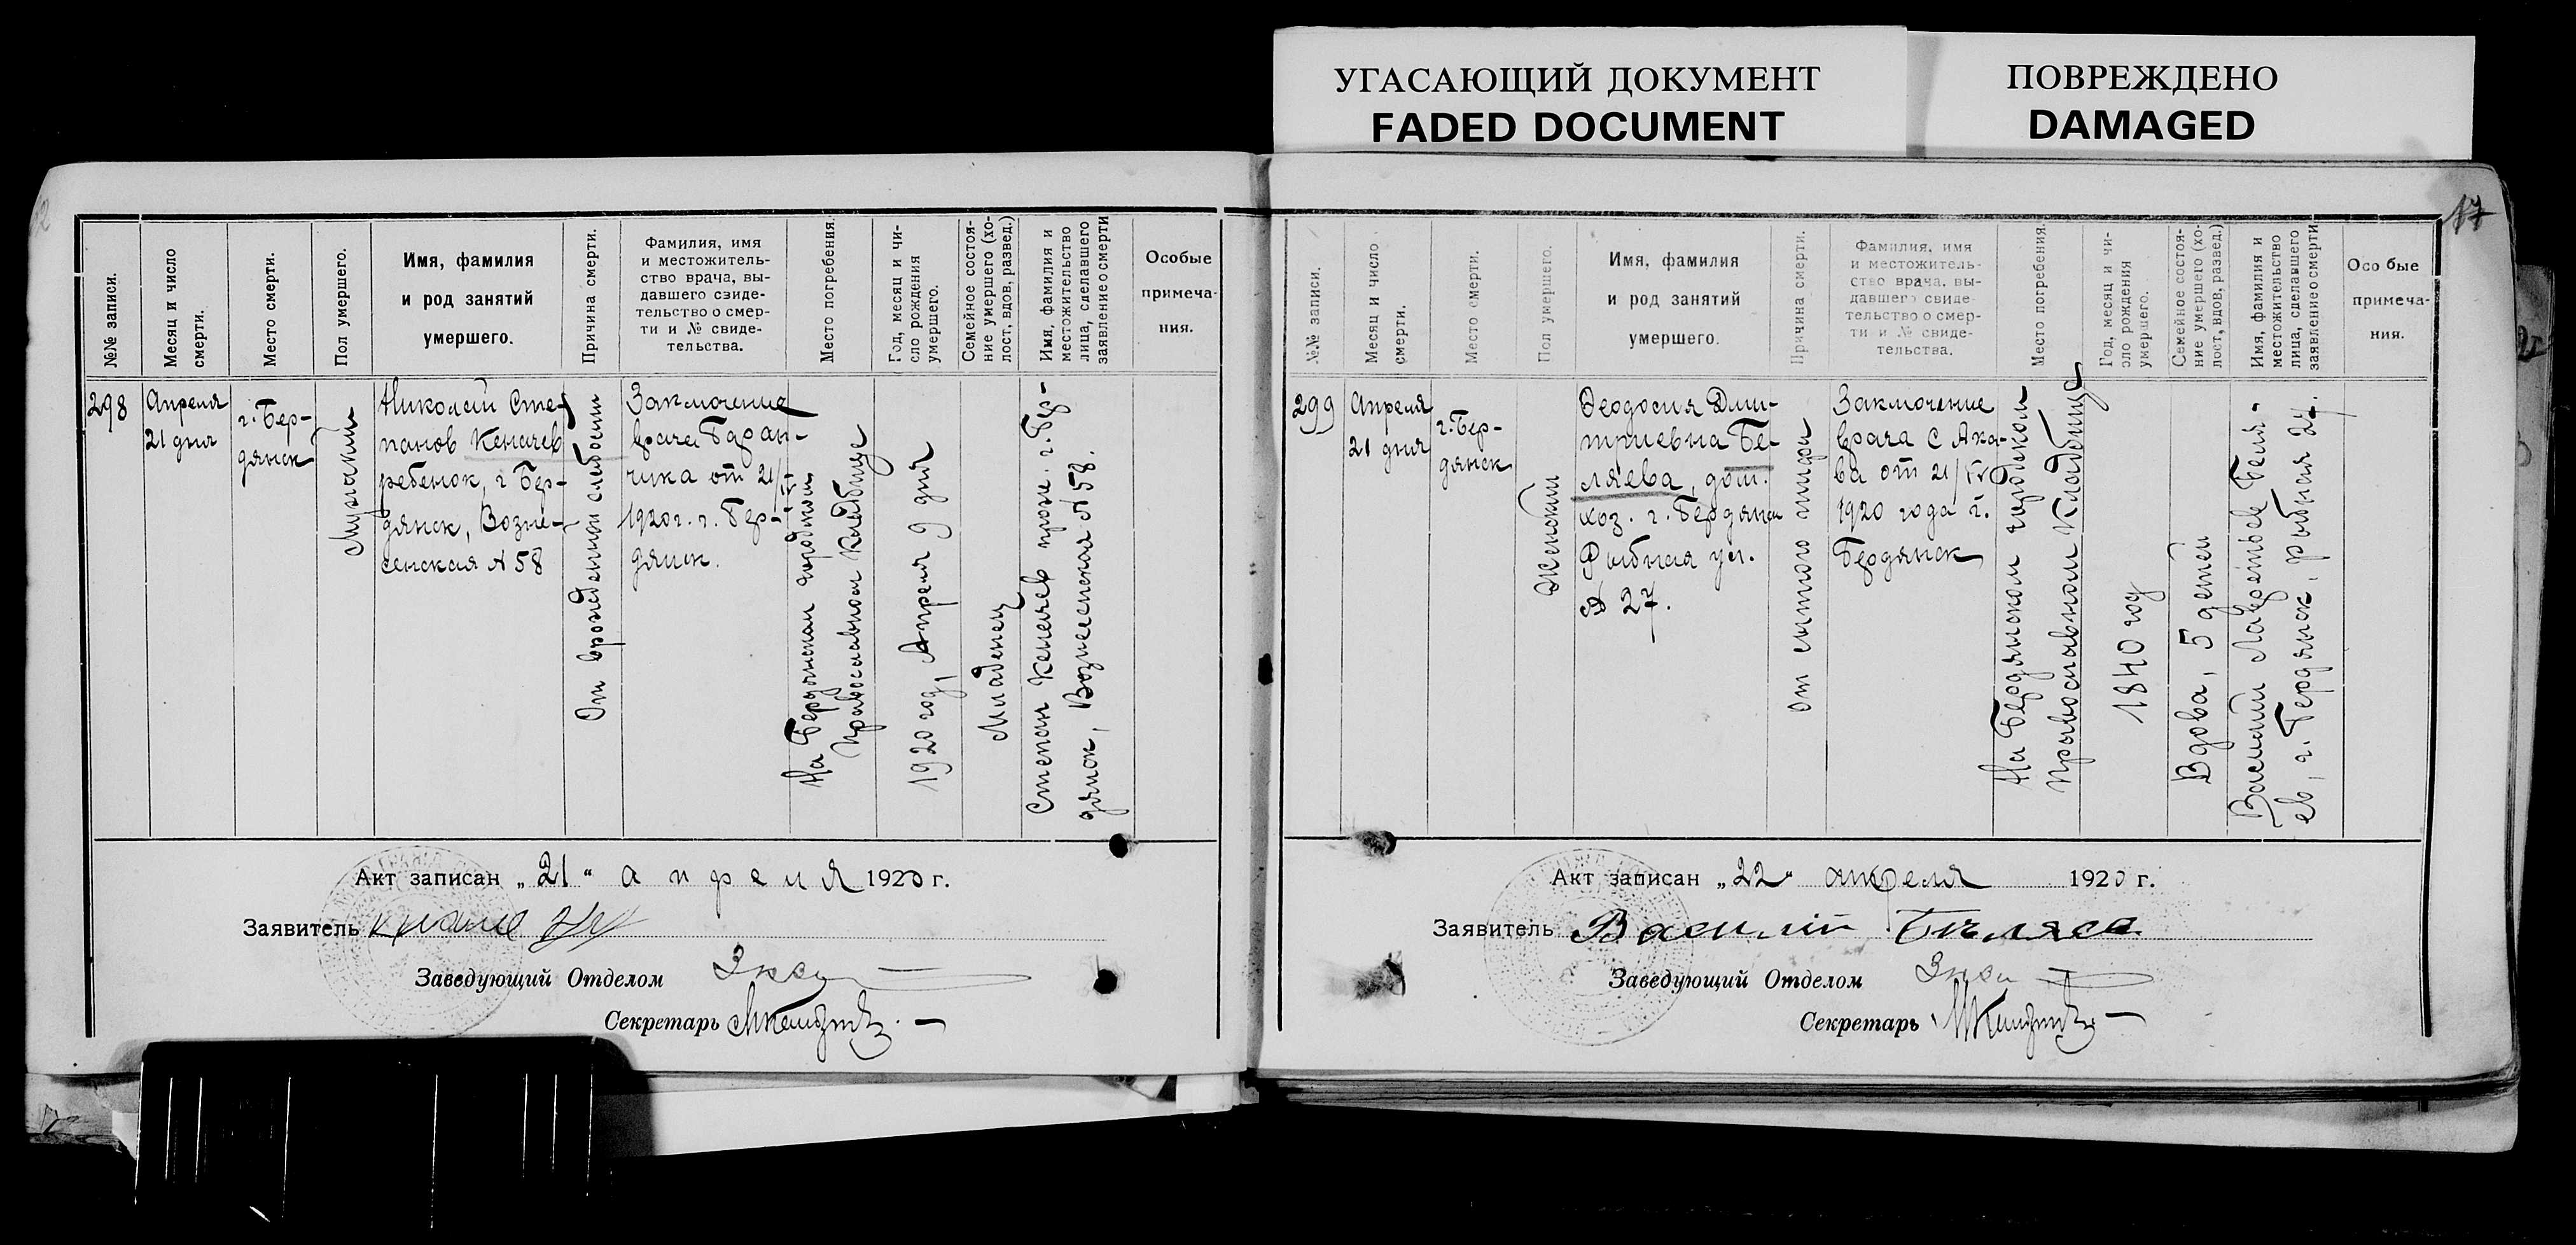 УГАСАЮЩИЙ ДОКУМЕНТ
FADED DOCUMENT
ПОВРЕЖДЕНО
DAMAGED
№№ записи.
Месяц и число
смерти.
Место смерти.
Пол умершего.
Имя, фамилия
и род занятий
умершего.
Причина смерти.
Фамилия, имя
и местожитель-
ство врача, вы-
давшего свиде-
тельство о смер-
ти и № свиде-
тельства.
Место погребения.
Год, месяц и чи-
сло рождения
умершего.
Семейное состоя-
ние умершего (хо-
лост, вдов, развед.)
Имя, фамилия и
местожительство
лица, сделавшего
заявление о смерти
Особые
примеча-
ния.
298
Апреля
21 дня
г. Бер-
дянск
Мужской
Николай Сте-
панов Кеначев
ребенок, г. Бер-
дянск, Возне-
сенская № 58
От врожденной слабости
Заключение
врача Баран-
чика от 21/IV
1920 г. г. Бер-
дянск.
На Бердянском городском
православном кладбище
1920 год, Апреля 9 дня
Младенец
Степан Кеначев прож. г. Бер-
дянск, Вознесенская № 58.
Акт записан „21“ апреля 1920 г.
Заявитель
Заведующий Отделом
Секретарь
17
№№ записи.
Месяц и число
смерти.
Место смерти.
Пол умершего.
Имя, фамилия
и род занятий
умершего.
Причина смерти.
Фамилия, имя
и местожитель-
ство врача, вы-
давшего свиде-
тельство о смер-
ти и № свиде-
тельства.
Место погребения.
Год, месяц и чи-
сло рождения
умершего.
Семейное состоя-
ние умершего (хо-
лост, вдов, развед.)
Имя, фамилия и
местожительство
лица, сделавшего
заявление о смерти
Особые
примеча-
ния.
299
Апреля
21 дня
г. Бер-
дянск
Женский
Феодосия Дми-
триевна Бе-
ляева, дом.
хоз. г. Бердянск
Рыбная ул.
№ 27.
от сыпного тифа
Заключение
врача С Ака-
ва от 21/IV
1920 года г.
Бердянск
На Бердянском городском
православном кладбище
1840 год
Вдова, 5 детей
Василий Лаврентьев Беля-
ев, г. Бердянск, Рыбная 27.
Акт записан „22“ апреля 1920 г.
Заявитель Василий Бѣляев
Заведующий Отделом
Секретарь